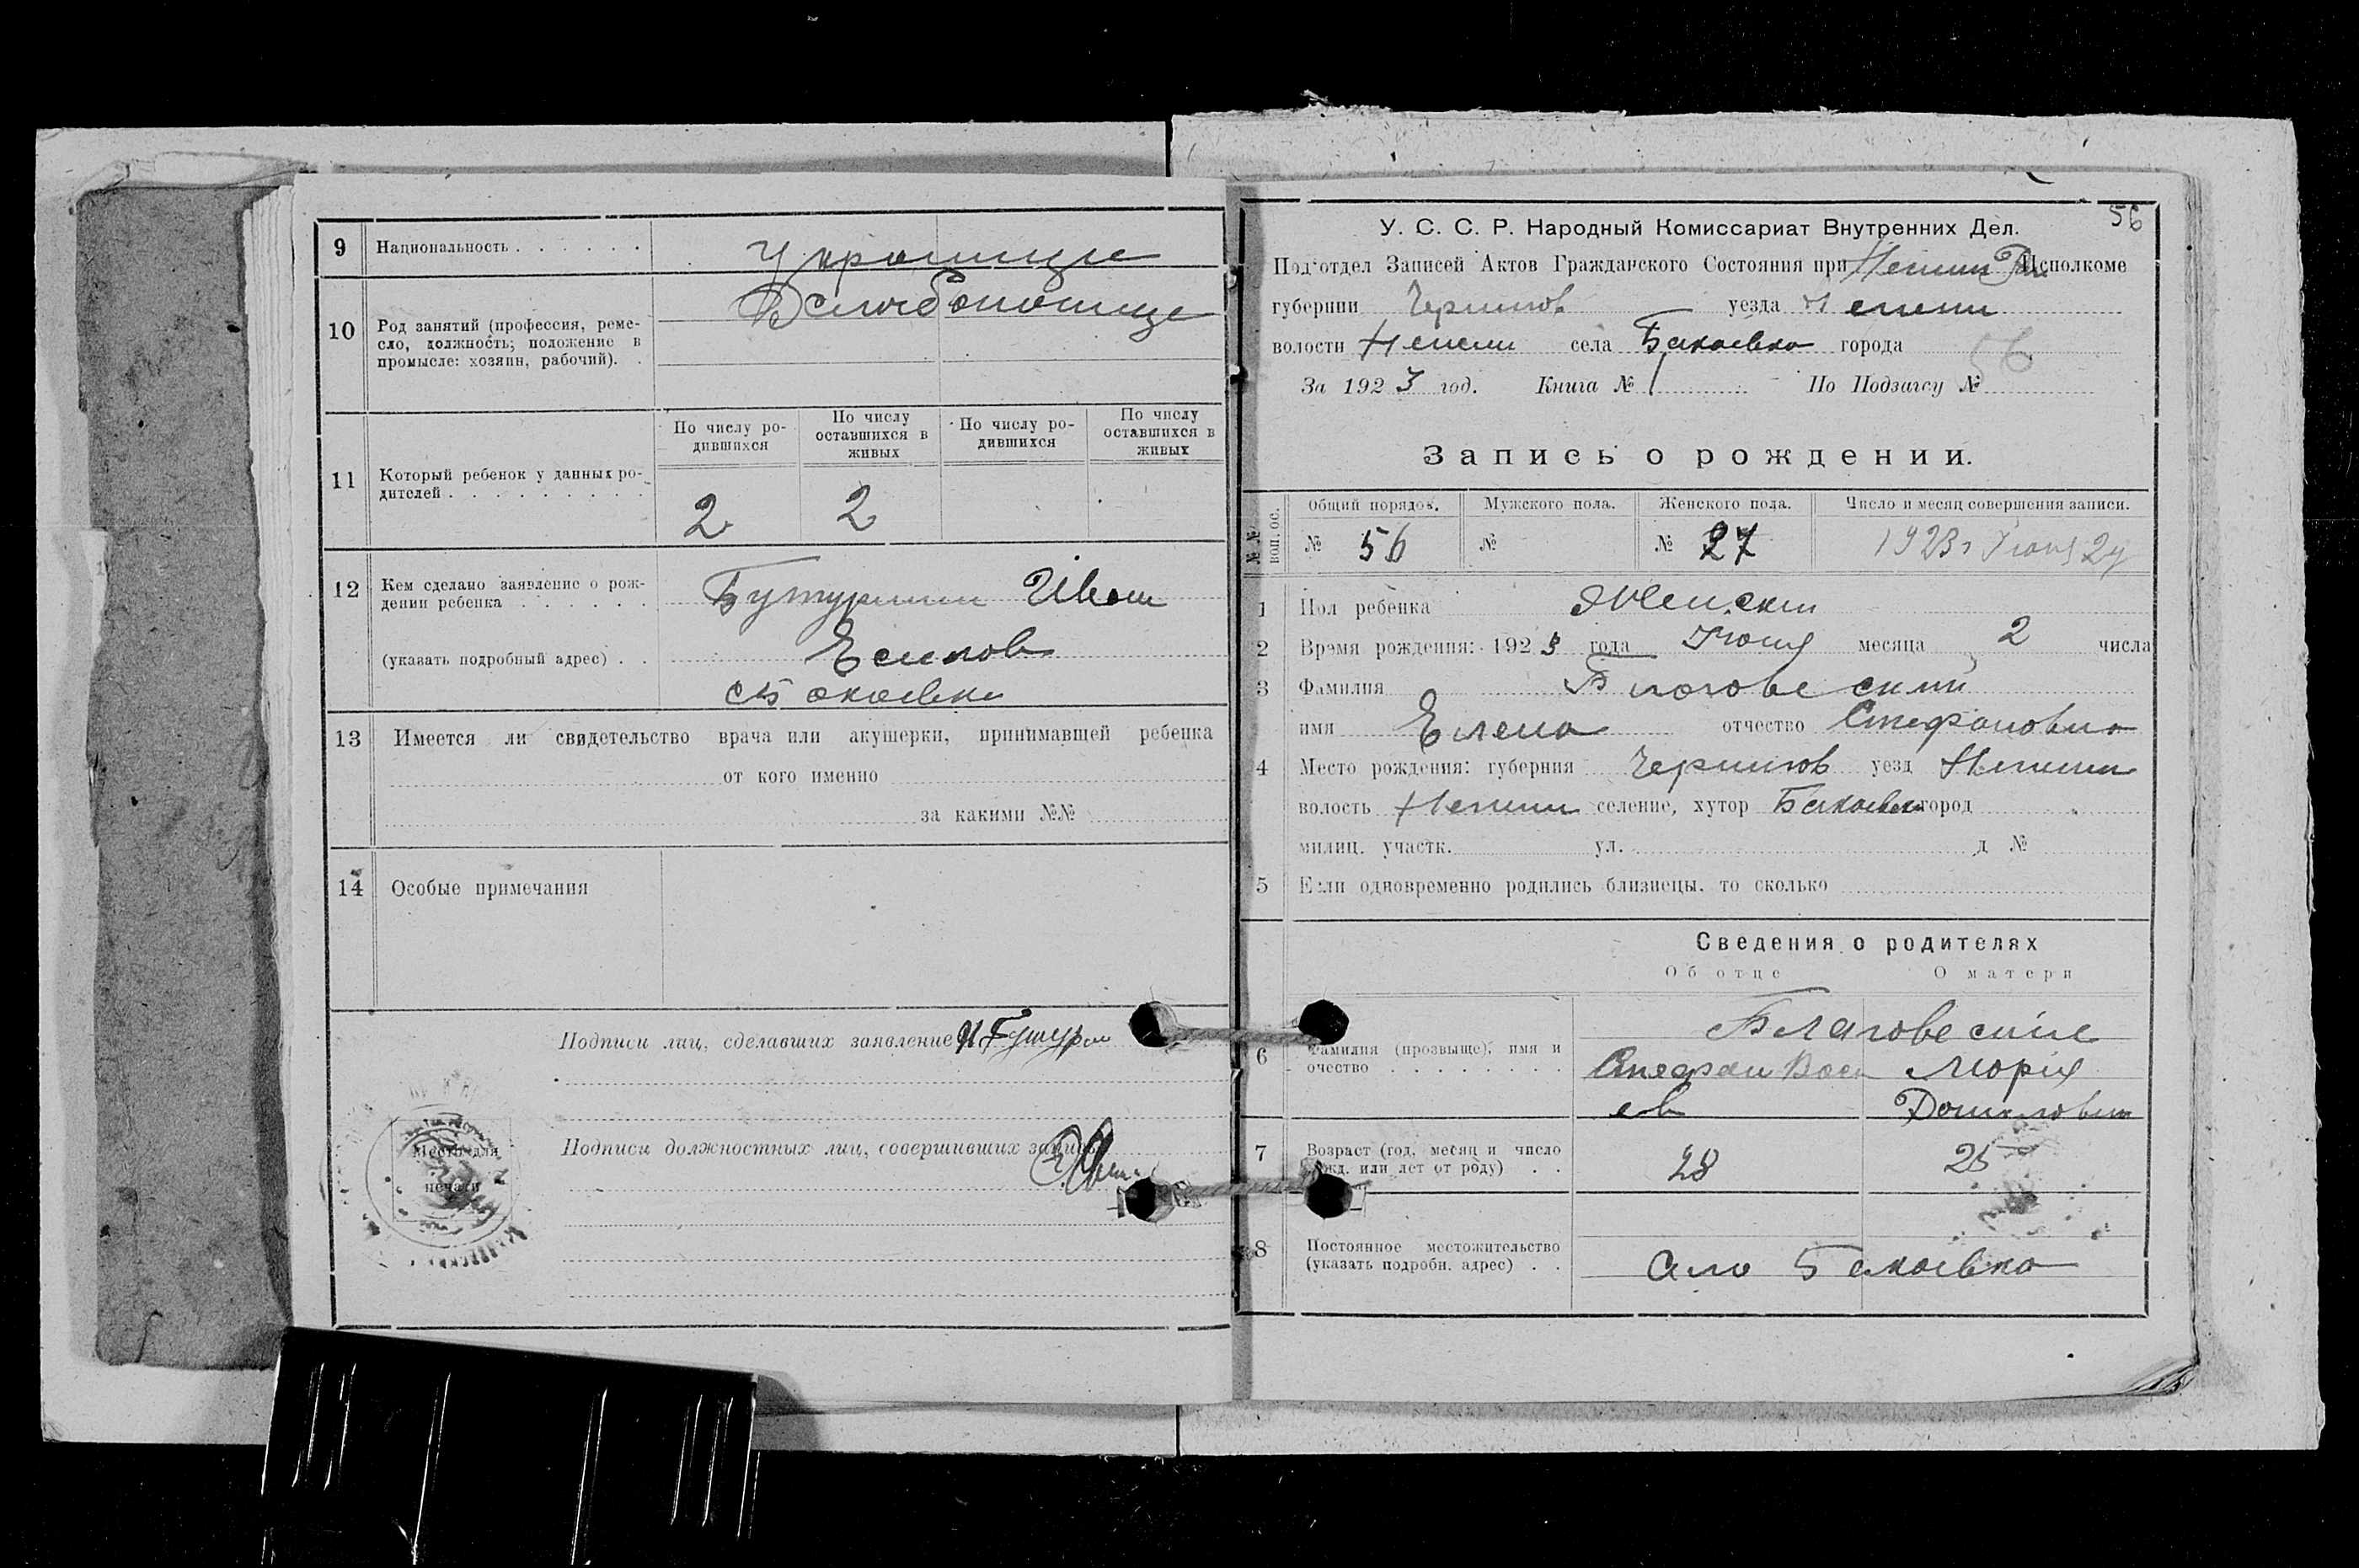 9 Национальность . . . . . .
Украинце
10 Род занятий (профессия, реме-
сло, должность; положение в
промысле: хозяин, рабочий). .
11 Который ребенок у данных ро-
дителей . . . . . . . . .
По числу ро-
дившихся
По числу
оставшихся в
живых
По числу ро-
дившихся
По числу
оставшихся в
живых
2 2
12 Кем сделано заявление о рож-
дении ребенка . . . . . .
Иван
(указать подробный адрес) . .
Есипов
13 Имеется ли свидетельство врача или акушерки, принимавшей ребенка
от кого именно
за какими №№
14 Особые примечания
Подписи лиц, сделавших заявление
Подписи должностных лиц, совершивших запись
Место для
печати
56
У. С. С. Р. Народный Комиссариат Внутренних Дел.
Под'отдел Записей Актов Гражданского Состояния при Нежин Исполкоме
губернии Чернигов уезда Нежин
волости Нежин села Бакаевка города
56
За 1923 год. Книга № 1 По Подзагсу №
Запись о рождении.
№№ воп. ос.
Общий порядок. Мужского пола. Женского пола. Число и месяц совершения записи.
№ 56 № № 27 1923 г Июня
1 Пол ребенка Женский
2 Время рождения: 1923 года Июня месяца 2 числа
3 Фамилия
имя Елена отчество Стефановна
4 Место рождения: губерния Чернигов уезд Нежин
волость Нежин селение, хутор Бакаевка город
милиц. участк. ул. д №
5 Если одновременно родились близнецы, то сколько
Сведения о родителях
Об отце О матери
6 Фамилия (прозвыще), имя и
очество . . . . . . . .
Стефан Васи Мария
ев Даниловна
7 Возраст (год, месяц и число
рожд. или лет от роду) . .
28 25
8 Постоянное местожительство
(указать подробн. адрес) . .
Бакаевка